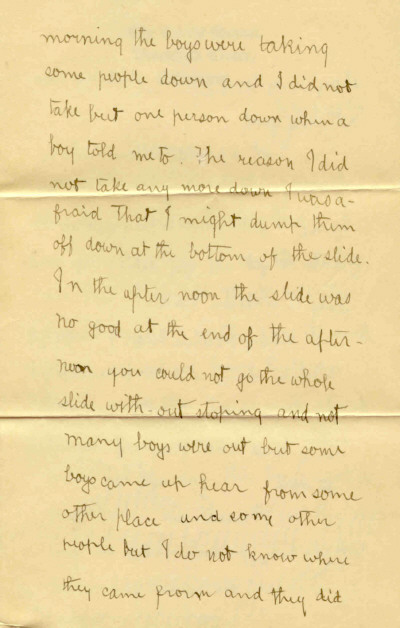 morning the boys were taking
some people down and I did not
take but one person down when a
boy told me to. The reason I did
not take any more down I was a-
fraid that I might dump them
off down at the bottom of the slide.
In the after noon the slide was
no good at the end of the after-
noon you could not go the whole
slide with-out stoping and not
many boys were out but some
boys came up hear from some
other place and some other
people but I do not know where
they came from and they did